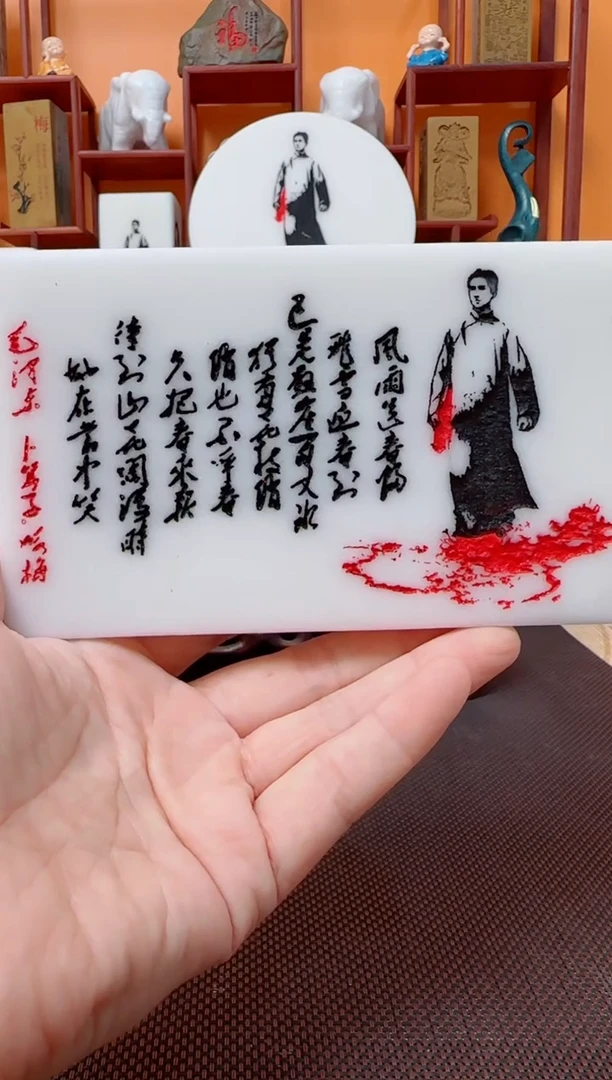 風雨送春歸
飛雪迎春到
已是懸崖百丈冰
猶有花枝俏
俏也不爭春
只把春來報
待到山花爛漫時
她在叢中笑
毛澤東 卜算子。咏梅
福
梅